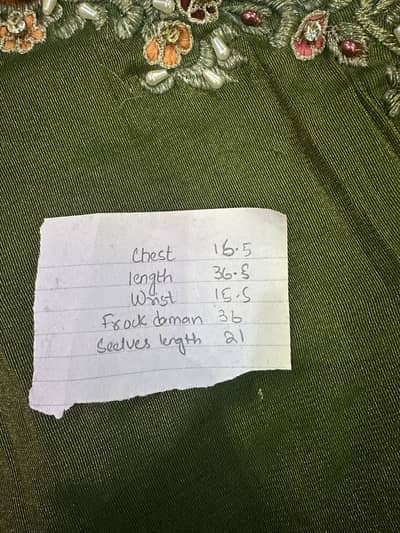 Chest 16.5
length 36.5
Wrist 15.5
Frock daman 36
Seelves length 21